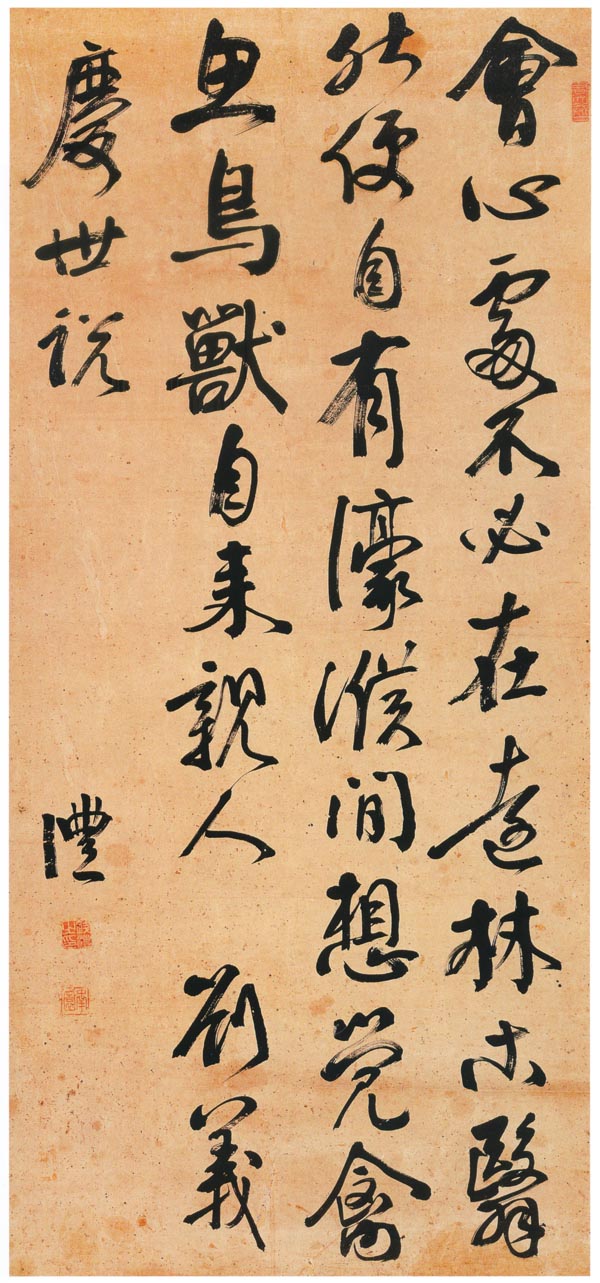 會心處不必在遠林木翳
然便自有濠濮間想覺禽
魚鳥獸自来親人 劉義
慶世説
灃